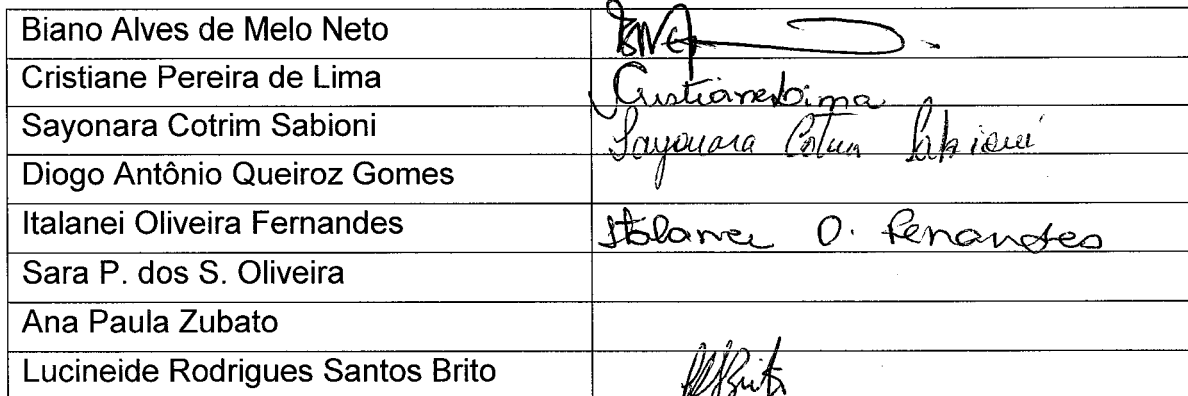 Biano Alves de Melo Neto
Cristiane Pereira de Lima Cristiane Lima
Sayonara Cotrim Sabioni Sayonara Cotrim Sabioni
Diogo Antônio Queiroz Gomes
Italanei Oliveira Fernandes Italanei O. Fernandes
Sara P. dos S. Oliveira
Ana Paula Zubato
Lucineide Rodrigues Santos Brito Brito